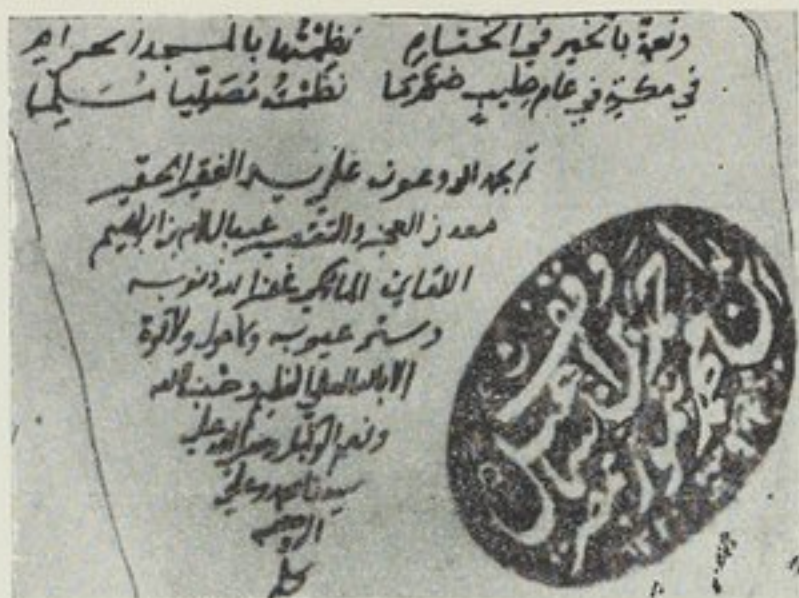 ونعمة بالخير في الختام نظمتها بالمسجد الحرام
في مكة في عام طيب نظمت مصليا مسلما
تم بحمد الله وعونه على يد الفقير الحقير
معدن العجز والتقصير عبد السلام بن ابراهيم
اللقاني المالكي غفر الله ذنوبه
وستر عيوبه ولا حول ولا قوة
الا بالله العلي العظيم وحسبنا الله
ونعم الوكيل وصلى الله على
سيدنا محمد وعلى
اله وصحبه
وقف
احمد بن اسماعيل
بن محمد تيمور
بمصر